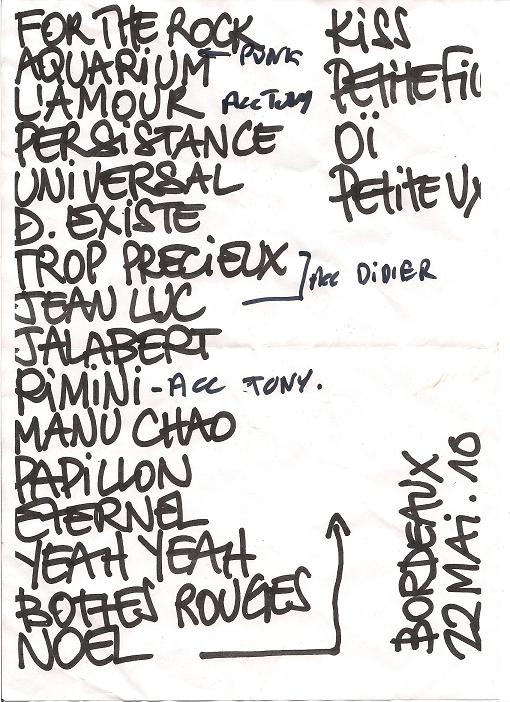 FOR THE ROCK
AQUARIUM ← PUNK
L'AMOUR ACC TONY
PERSISTANCE
UNIVERSAL
D. EXISTE
TROP PRECIEUX
JEAN LUC
ACC DIDIER
JALABERT
RIMINI - ACC TONY.
MANU CHAO
PAPILLON
ETERNEL
YEAH YEAH
BOTTES ROUGES
NOEL
KISS
PETITE
OÏ
PETITE
BORDEAUX
22 MAI. 10